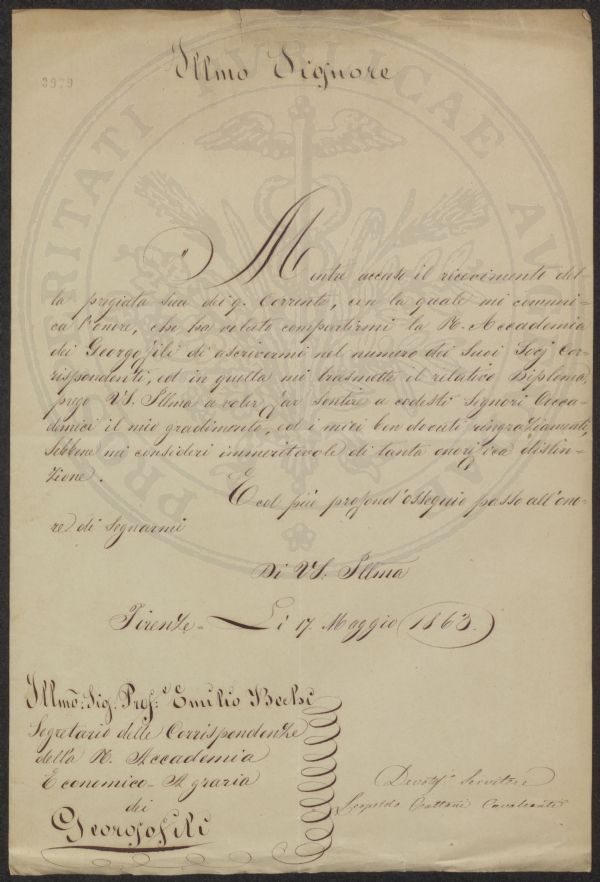 3979
Illmo Signore
Mentre accuso il ricevimento del-
la pregiata sua dei 9. Corrente, con la quale mi comuni-
ca l'onore, che ha voluto compartirmi la R. Accademia
dei Georgofili di ascrivermi nel numero dei suoi Socj Cor-
rispondenti, ed in quella mi trasmette il relativo Diploma,
prego VS. Illma a voler far sentire a codesti Signori Acca-
demici il mio gradimento, ed i miei ben dovuti ringraziamenti,
sebbene mi consideri immeritevole di tanta onorifica distin-
zione.
E col più profond'ossequio passo all'ono-
re di segnarmi
Di VS. Illma
Firenze - Li 17. Maggio 1863.
Illmo: Sig: Prof:e Emilio Bechi
Segretario delle Corrispondenze
della R. Accademia
Economico-Agraria
dei
Georgofili
Devotmo Servitore
Leopoldo Cattani Cavalcanti
PROSPERITATI PUBLICAE AU